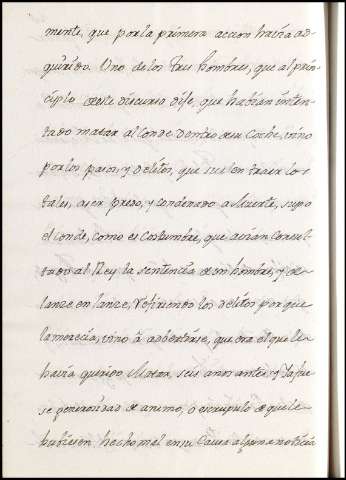 mente, que por la primera accion havia ad-
quirido. Uno de los tres hombres, que al prin-
cipio deste discurso dije, que habian inten-
tado matar al Conde dentro de su Coche, vino
por los pasos, y delitos, que suelen traer los
tales, a ser preso, y condenado a Muerte, supo
el Conde, como es Costumbre, que avian Consul-
tado al Rey la sentencia de un hombre, y de
lanze en lanze, refiriendo los delitos por que
la morecia, vino â advertirse, que era el que le
havia querido Matar, seis anos antes. y Ya fue-
se generosidad de animo, o escrupulo de que le
hubiesen hecho mal en su Causa alguna noticia